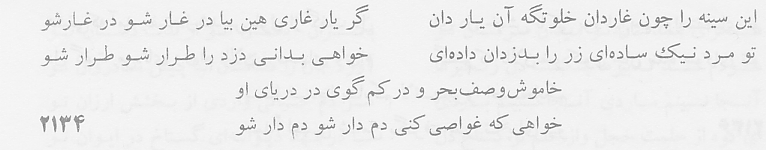 این سینه را چون غاردان خلوتگه آن یار دان گر یار غاری هین بیا در غار شو در غارشو
تو مرد نیک ساده‌ای زر را بدزدان داده‌ای خواهی بدانی دزد را طرار شو طرار شو
خاموش وصف بحر و در کم گوی در دریای او
خواهی که غواصی کنی دم دار شو دم دار شو ۲۱۳۴